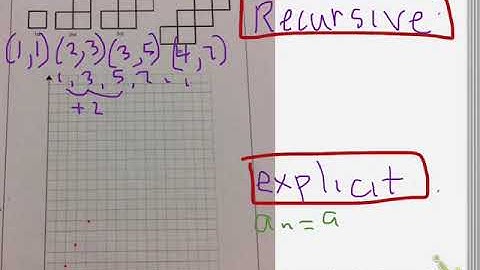 Recursive
(1,1) (2,3) (3,5) (4,7)
1, 3, 5, 7, ,
+2
explicit
an=a